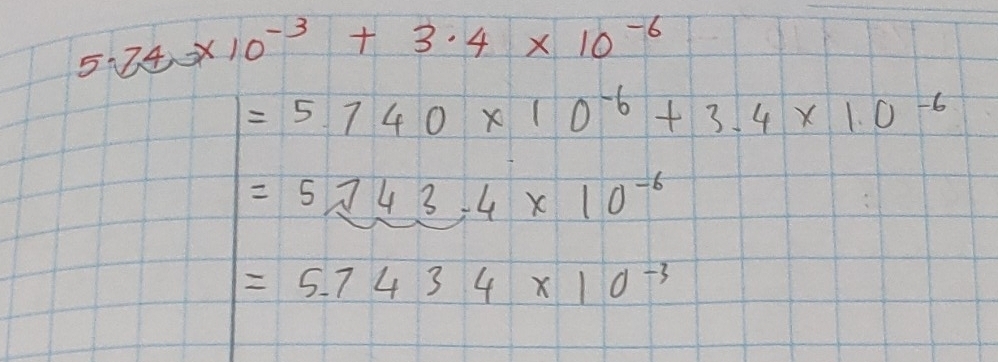 5.74 × 10⁻³ + 3.4 × 10⁻⁶
= 5740 × 10⁻⁶ + 3.4 × 10⁻⁶
= 5743.4 × 10⁻⁶
= 5.7434 × 10⁻³